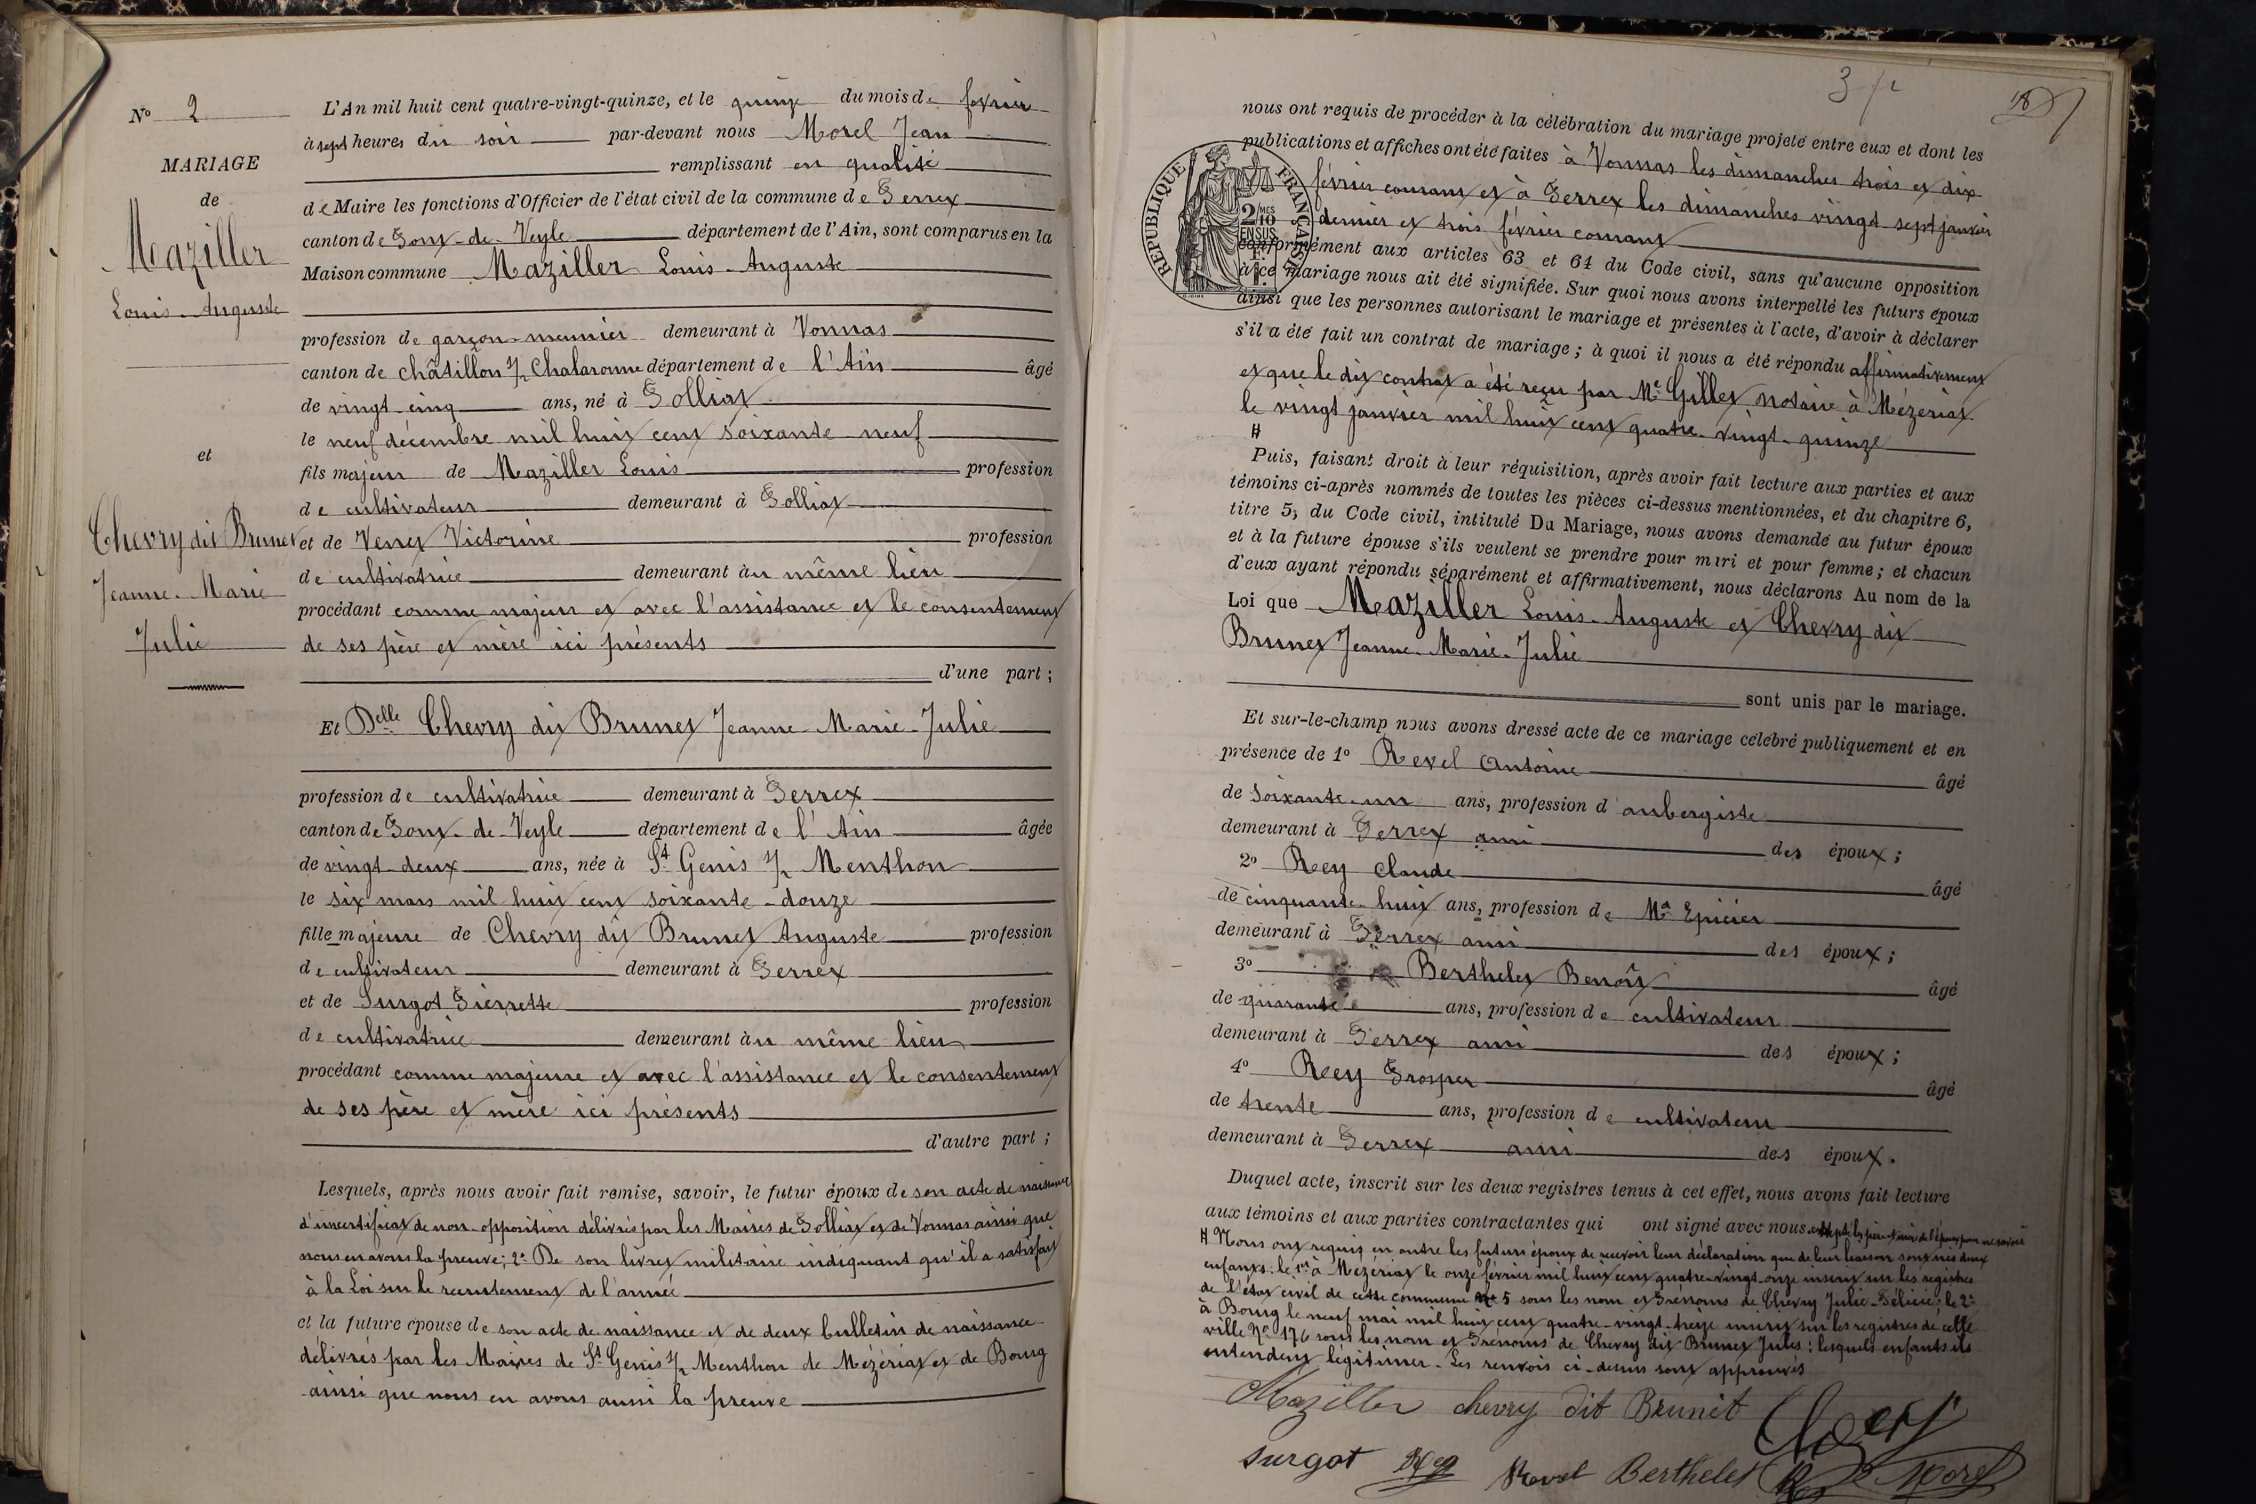 No 2
MARIAGE
de
Maziller
Louis-Auguste
et
Chevry dit Brunet
Jeanne-Marie
Julie
L'An mil huit cent quatre-vingt-quinze, et le quinze du mois de février
à sept heures du soir par-devant nous Morel Jean
remplissant en qualité
de Maire les fonctions d'Officier de l'état civil de la commune de Perrex
canton de Pont-de-Veyle département de l'Ain, sont comparus en la
Maison commune Maziller Louis-Auguste
profession de garçon-meunier demeurant à Vonnas
canton de Châtillon s/ Chalaronne département de l'Ain âgé
de vingt-cinq ans, né à Polliat
le neuf décembre mil huit cent soixante-neuf
fils majeur de Maziller Louis profession
de cultivateur demeurant à Polliat
et de Venet Victorine profession
de cultivatrice demeurant au même lieu
procédant comme majeur et avec l'assistance et le consentement
de ses père et mère ici présents
d'une part;
Et Delle Chevry dit Brunet Jeanne-Marie-Julie
profession de cultivatrice demeurant à Perrex
canton de Pont-de-Veyle département de l'Ain âgée
de vingt-deux ans, née à St Genis s/ Menthon
le six mars mil huit cent soixante-douze
fille majeure de Chevry dit Brunet Auguste profession
de cultivateur demeurant à Perrex
et de Surgot Pierrette profession
de cultivatrice demeurant au même lieu
procédant comme majeure et avec l'assistance et le consentement
de ses père et mère ici présents
d'autre part;
Lesquels, après nous avoir fait remise, savoir, le futur époux de son acte de naissance
d'un certificat de non-opposition délivrés par les Maires de Polliat et de Vonnas ainsi que
nous en avons la preuve; 2° De son livret militaire indiquant qu'il a satisfait
à la Loi sur le recrutement de l'armée
et la future épouse de son acte de naissance et de deux bulletin de naissance
délivrés par les Maires de St Genis s/ Menthon de Mézériat et de Bourg
ainsi que nous en avons aussi la preuve
18
nous ont requis de procéder à la célébration du mariage projeté entre eux et dont les
publications et affiches ont été faites à Vonnas les dimanches trois et dix
février courant et à Perrex les dimanches vingt-sept janvier
dernier et trois février courant
RÉPUBLIQUE FRANÇAISE
2/10 MES
EN SUS
conformément aux articles 63 et 64 du Code civil, sans qu'aucune opposition
à ce mariage nous ait été signifiée. Sur quoi nous avons interpellé les futurs époux
ainsi que les personnes autorisant le mariage et présentes à l'acte, d'avoir à déclarer
s'il a été fait un contrat de mariage; à quoi il nous a été répondu affirmativement
et que le dit contrat a été reçu par Me Gillet notaire à Mézériat
le vingt janvier mil huit cent quatre-vingt-quinze
#
Puis, faisant droit à leur réquisition, après avoir fait lecture aux parties et aux
témoins ci-après nommés de toutes les pièces ci-dessus mentionnées, et du chapitre 6,
titre 5, du Code civil, intitulé Du Mariage, nous avons demandé au futur époux
et à la future épouse s'ils veulent se prendre pour mari et pour femme; et chacun
d'eux ayant répondu séparément et affirmativement, nous déclarons Au nom de la
Loi que Maziller Louis-Auguste et Chevry dit
Brunet Jeanne-Marie-Julie
sont unis par le mariage.
Et sur-le-champ nous avons dressé acte de ce mariage célébré publiquement et en
présence de 1° Revel Antoine âgé
de soixante-un ans, profession d'aubergiste
demeurant à Perrex ami des époux;
2° Rey Claude âgé
de cinquante-huit ans, profession de Md Epicier
demeurant à Perrex ami des époux;
3° Berthelet Benoît âgé
de quarante ans, profession de cultivateur
demeurant à Perrex ami des époux;
4° Rey Prosper âgé
de trente ans, profession de cultivateur
demeurant à Perrex ami des époux.
Duquel acte, inscrit sur les deux registres tenus à cet effet, nous avons fait lecture
aux témoins et aux parties contractantes qui ont signé avec nous excepté les père et mère de l'époux pour ne savoir
# Nous ont requis en outre les futurs époux de recevoir leur déclaration que de leur liaison sont nés deux
enfants: le 1er à Mézériat le onze février mil huit cent quatre-vingt-onze inscrit sur les registres
de l'état civil de cette commune No 5 sous les nom et Prénoms de Chevry Julie-Félicie; le 2e
à Bourg le neuf mai mil huit cent quatre-vingt-treize inscrit sur les registres de cette
ville No 176 sous les nom et Prénoms de Chevry dit Brunet Jules: lesquels enfants ils
entendent légitimer. Les renvois ci-dessus sont approuvés
Maziller chevry dit Brunet
surgot Rey Revel Berthelet Morel